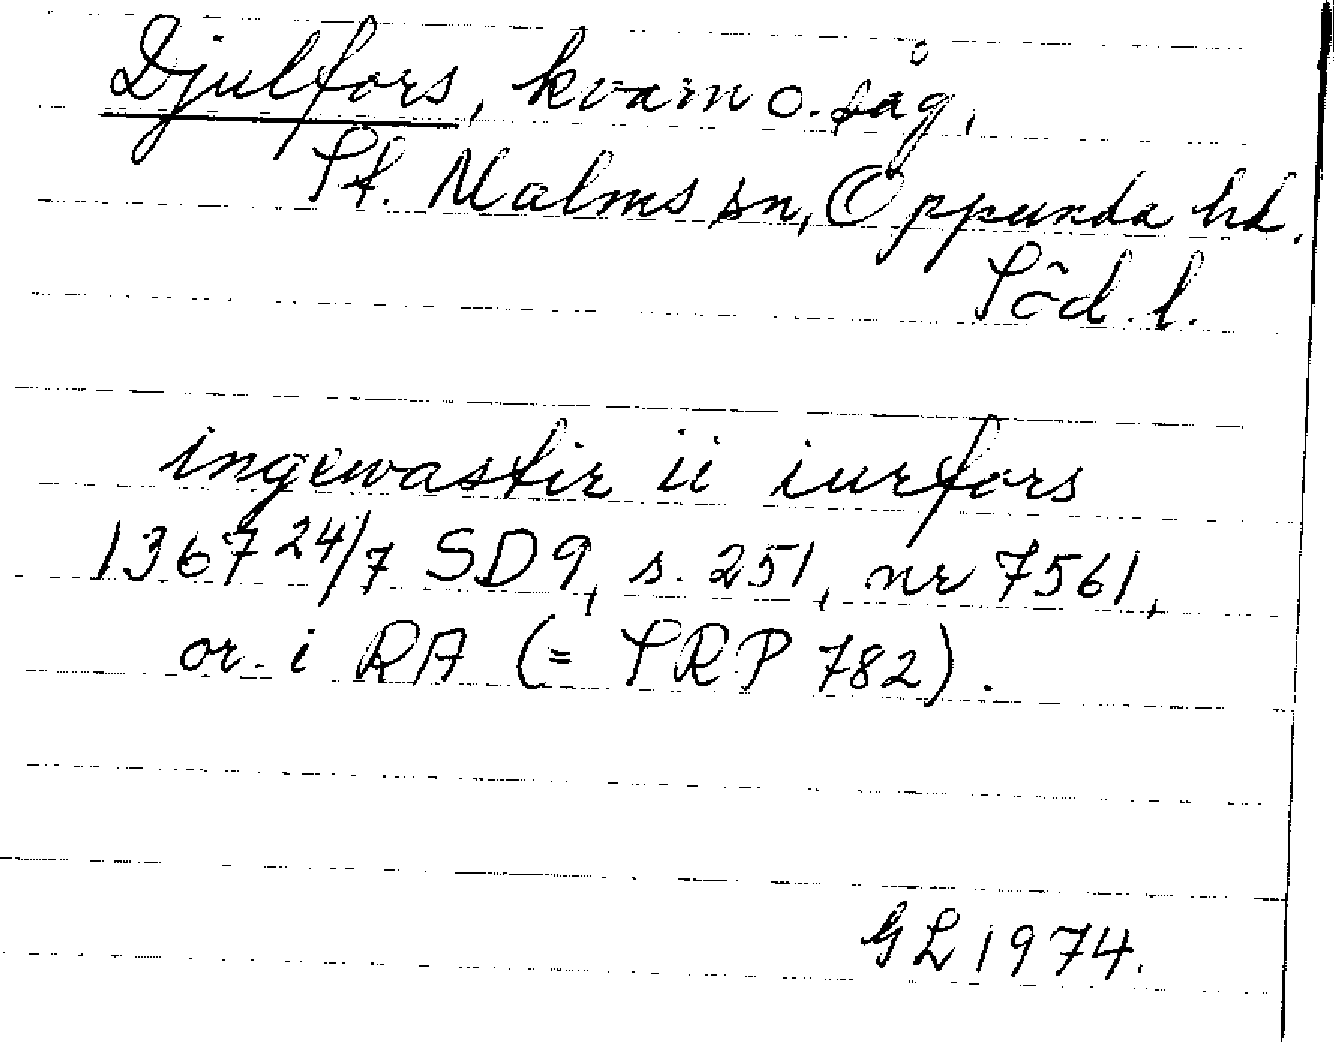 Djulfors, kvarn o. såg,
St. Malms sn, Oppunda hd.
Söd. l.
ingewastir ii iurfors
1367 24/7 SD 9, s. 251, nr 7561,
or. i RA (= SRP 782).
GL 1974.